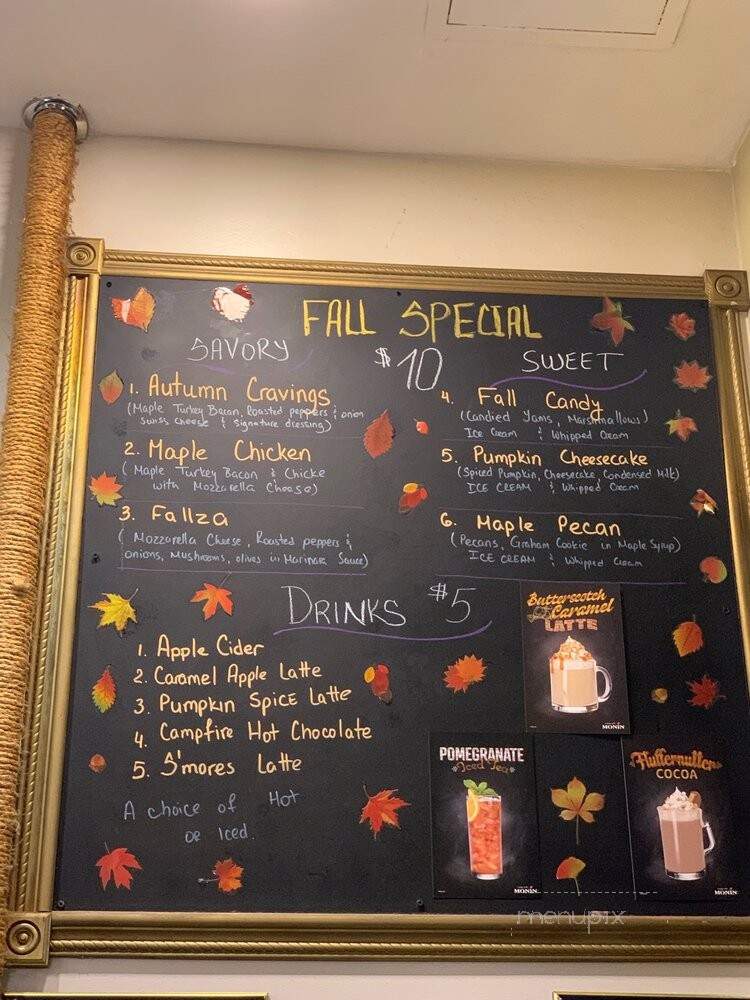 FALL SPECIAL
SAVORY
$10
SWEET
1. Autumn Cravings
(Maple Turkey Bacon, Roasted peppers & onion
Swiss cheese & signature dressing)
2. Maple Chicken
(Maple Turkey Bacon & Chicke
with Mozzarella Cheese)
3. Fallza
(Mozzarella Cheese, Roasted peppers &
onions, Mushrooms, olives in Marinara Sauce)
4. Fall Candy
(Candied Yams, Marshmallows)
ICE Cream & Whipped Cream
5. Pumpkin Cheesecake
(Spiced Pumpkin, Cheesecake, Condensed Milk)
ICE CREAM & Whipped Cream
6. Maple Pecan
(Pecans, Graham Cookie in Maple Syrup)
ICE CREAM & Whipped Cream
DRINKS $5
1. Apple Cider
2. Caramel Apple Latte
3. Pumpkin Spice Latte
4. Campfire Hot Chocolate
5. S'mores Latte
A choice of Hot
or Iced.
Butterscotch
Caramel
LATTE
MONIN
POMEGRANATE
Iced Tea
MONIN
Fluffernutter
COCOA
MONIN
menupix